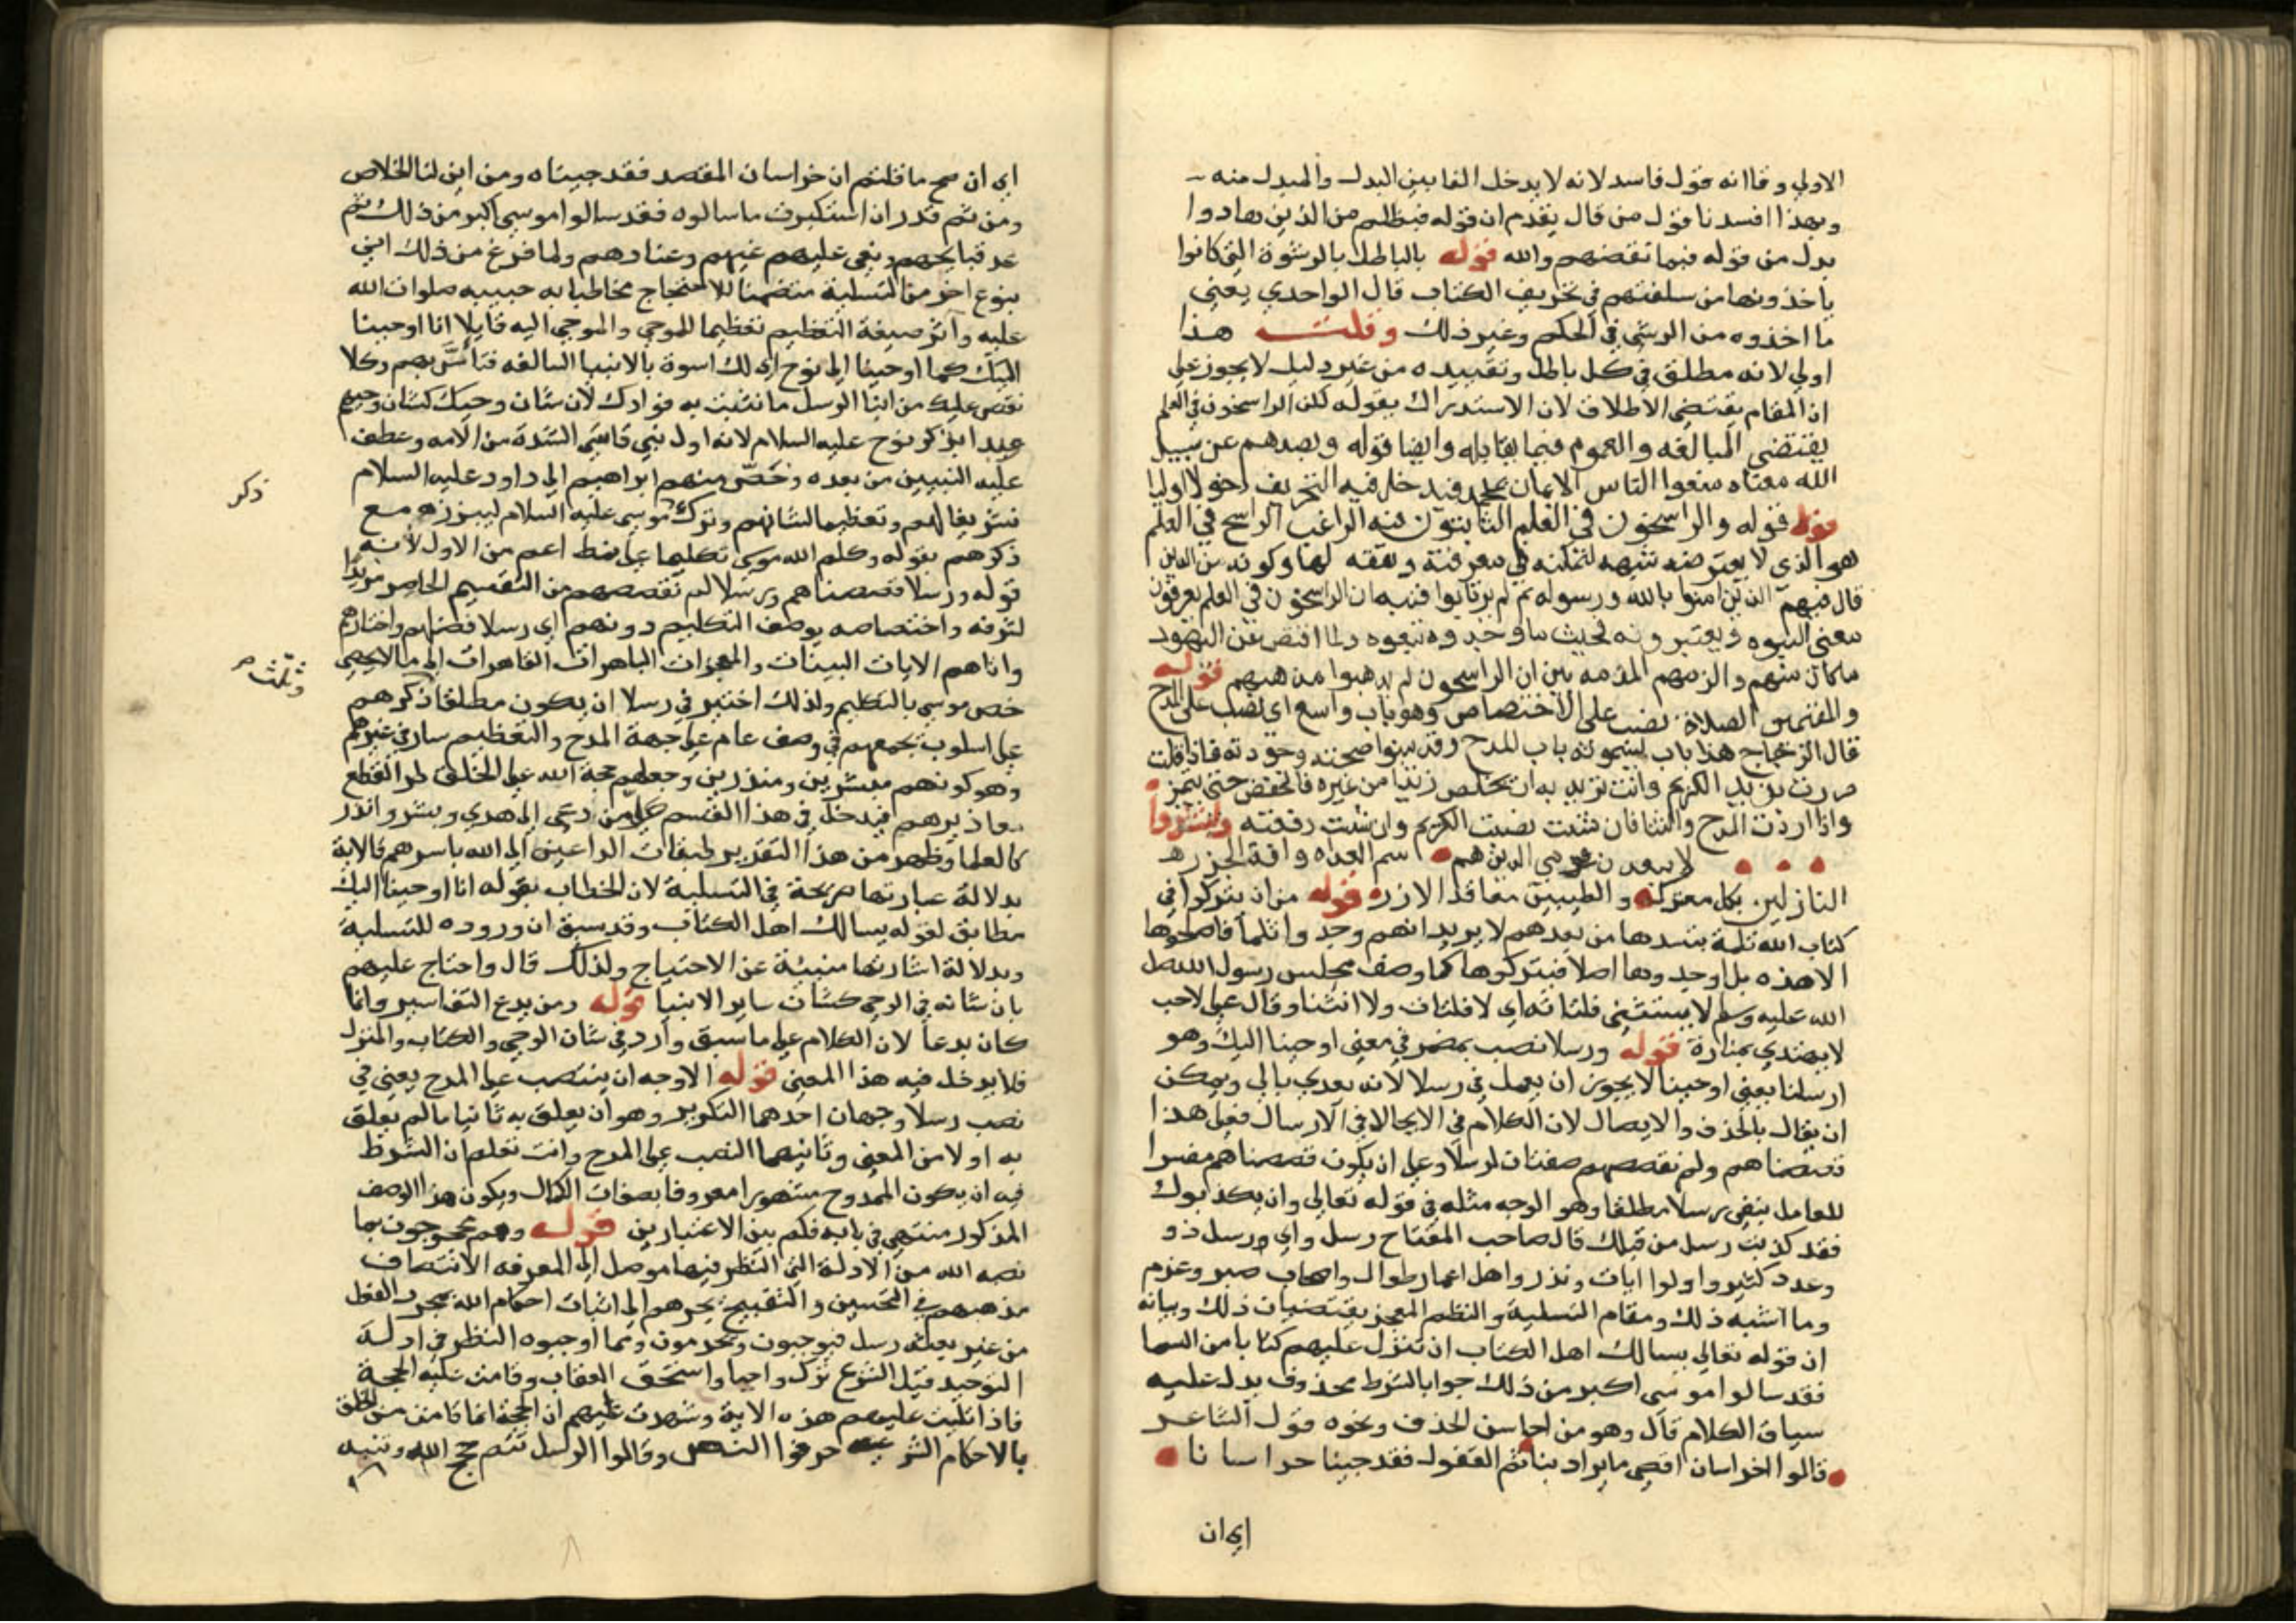 الاولي وقال انه قول فاسد لانه لا يدخل الفا بين البدل والمبدل منه
وبهذا افسدنا قول من قال يقدم ان قوله فبظلم من الذين هادوا
بدل من قوله فبما نقضهم والله قوله بالباطل بالرشوة التي كانوا
ياخذونها من سفلتهم في تحريف الكتاب قال الواحدي يعني
ما اخذوه من الرشي في الحكم وغير ذلك وقلت هذا
اولي لانه مطلق في كل باطل وتقييده من غير دليل لا يجوز علي
ان المقام يقتضي الاطلاق لان الاستدراك بقوله لكن الراسخون في العلم
يقتضي المبالغه والعموم فيما يقابله وايضا قوله وبصدهم عن سبيل
الله معناه منعوا الناس الايمان بمحمد فيدخل فيه التحريف دخولا اوليا
قوله قوله والراسخون في العلم الثابتون فيه الراغب الراسخ في العلم
هو الذي لا يعترضه شبهه لتمكنه في معرفته وكونه من الذين
قال فيهم الذين امنوا بالله ورسوله ثم لم يرتابوا فنبه ان الراسخون في العلم يعرفون
معني النبوه ويعتبرونه بحيث ما وجدوه تبعوه ولما اقتص عن اليهود
ما كان منهم والزمهم المذمه بين ان الراسخون لم يذهبوا مذهبهم قوله
والمقيمين الصلاة نصب علي الاختصاص وهو باب واسع اي نصب علي المدح
قال الزجاج هذا باب يسمونه باب المدح وقد بينوا صحته وجودته فاذا قلت
مررت بزيد الكريم وانت تريد به ان تخلص زيدا من غيره فالخفض حتي يتميز
واذا اردت المدح والثنا فان شئت نصبت الكريم وان شئت رفعته وانشدوا
لا يبعدن قومي الذين هم سم العداه وافة الجزر
النازلين بكل معترك والطيبين معاقد الازر قوله من ان يتركوا في
كتاب الله ثلمة يسدها من بعدهم لا يريد انهم وجدوا ثلما فاصلحوها
الا هذه بل ما وجدوها اصلا فيتركوها كما وصف مجلس رسول الله صلي
الله عليه وسلم لا ينثني فلتاته اي لا فلتات ولا انثنا وقال علي لاحب
لا يهتدي بمناره قوله ورسلا نصب بمضمر في معني اوحينا اليك وهو
ارسلنا يعني اوحينا لا يجوز ان يعمل في رسلا لانه يعدي بالي ويمكن
ان يقال بالحذف والايصال لان الكلام في الايحا لا في الارسال فعلي هذا
قصصناهم ولم نقصصهم صفتان لرسلا وعلي ان يكون قصصناهم مفسرا
للعامل يبقي رسلا مطلقا وهو الوجه مثله في قوله تعالي وان يكذبوك
فقد كذبت رسل من قبلك قال صاحب المفتاح رسل واي رسل ذو
وعدد كثير واولوا ايات ونذر واهل اعمار طوال واصحاب صبر وعزم
وما اشبه ذلك ومقام التسلية والنظم المعجز يقتضيان ذلك وبيانه
ان قوله تعالي يسالك اهل الكتاب ان تنزل عليهم كتابا من السما
فقد سالوا موسي اكبر من ذلك جواب الشرط محذوف يدل عليه
سياق الكلام قال وهو من احاسن الحذف ونحوه قول الشاعر
قالوا خراسان اقصي ما يراد بنا ثم القفول فقد جينا خراسانا
اي ان
اي ان صح ما قلتم ان خراسان المقصد فقد جيناه ومن اين لنا الخلاص
ومن ثم قدر ان استكبرت ما سالوه فقد سالوا موسي اكبر من ذلك ثم
عد قبايحهم ونعي عليهم غيهم وعنادهم ولما فرغ من ذلك اتي
بنوع اخر من التسلية متضمنا للاحتجاج مخاطبا به حبيبه صلوات الله
عليه وآثر صيغة التعظيم تعظيما للوحي والموحي اليه قايلا انا اوحينا
اليك كما اوحينا الي نوح اي لك اسوة بالانبيا السالفه فتاسّ بهم وكلا
نقص عليك من انبا الرسل ما نثبت به فوادك لان شان وحيك كشان وحيهم
وبدا بذكر نوح عليه السلام لانه اول نبي قاسي الشدة من الامه وعطف
عليه النبيين من بعده وخصّ منهم ابراهيم الي داود عليه السلام
تشريفا لهم وتعظيما لشانهم وترك موسي عليه السلام ليبرزه مع
ذكر
ذكرهم بقوله وكلم الله موسي تكليما علي نمط اعم من الاول لانه
قوله ورسلا قصصناهم ورسلا لم نقصصهم من التقسيم الحاصر مزيدا
لشرفه واختصاصه بوصف التكليم دونهم اي رسلا فضلهم واختارهم
واتاهم الايات البينات والمعجزات الباهرات القاهرات الي ما لا يحصي
وثلّث
خص موسي بالتكليم ولذلك اختير في رسلا ان يكون مطلقا ذكرهم
علي اسلوب يجمعهم في وصف عام علي جهة المدح والتعظيم سار في غيرهم
وهو كونهم مبشرين ومنذرين وجعلهم حجة الله علي الخلق طرا لقطع
معاذيرهم فيدخل في هذا القسم كل من دعي الي هدي وبشر وانذر
كالعلما وظهر من هذا التقدير طبقات الداعين الي الله باسرهم فالاية
بدلالة عبارتها صريحة في التسلية لان الخطاب بقوله انا اوحينا اليك
مطابق لقوله يسالك اهل الكتاب وقد سبق ان وروده للتسلية
وبدلالة اشارتها منبئة عن الاحتياج ولذلك قال واحتاج عليهم
بان شانه في الوحي كشان ساير الانبيا قوله ومن بدع التفاسير وانما
كان بدعا لان الكلام علي ما سبق وارد في شان الوحي والكتاب والمنزل
فلا يدخل فيه هذا المعني قوله الاوجه ان ينتصب علي المدح يعني في
نصب رسلا وجهان احدهما التكرير وهو ان يعلق به ثانيا ما لم يعلق
به اولا من المعني وثانيهما النصب علي المدح وانت تعلم ان الشرط
فيه ان يكون الممدوح مشهورا معروفا بصفات الكمال ويكون هذا الوصف
المذكور منتهي في بابه فلم بين الاعتبارين قوله وهم محجوجون بما
نصبه الله من الادلة التي النظر فيها موصل الي المعرفه الانتصاف
مذهبهم في التحسين والتقبيح يجرهم الي اثبات احكام الله بمجرد العقل
من غير بعثة رسل فيوجبون ويحرمون ومما اوجبوه النظر في ادلة
التوحيد قبل الشرع ترك واجبا واستحق العقاب وقامت عليه الحجة
فاذا تليت عليهم هذه الاية وشهدت عليهم ان الحجة انما قامت من الخلق
بالاحكام الشرعية حرفوا النص وقالوا الرسل تتم حجج الله وتنبيه